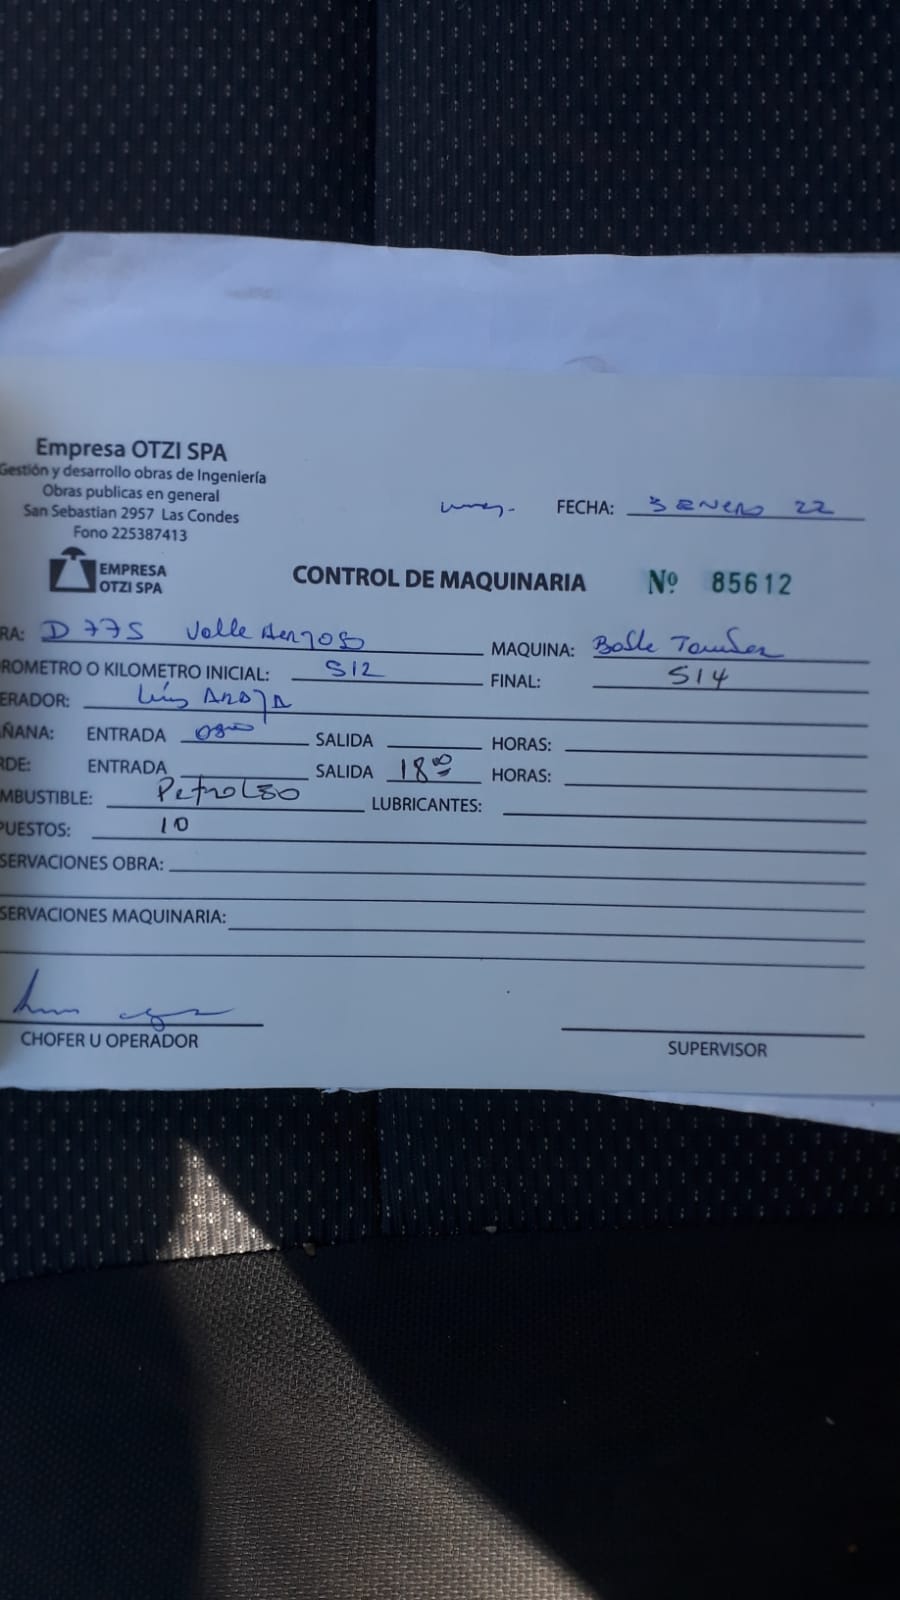 Empresa OTZI SPA
Gestión y desarrollo obras de Ingeniería
Obras publicas en general
San Sebastian 2957 Las Condes
Fono 225387413
FECHA: 3 ENERO 22
EMPRESA
OTZI SPA
CONTROL DE MAQUINARIA Nº 85612
RA: D 775 Valle Hermoso MAQUINA:
ROMETRO O KILOMETRO INICIAL: 512 FINAL: 514
ERADOR: Luis
ÑANA: ENTRADA 0800 SALIDA HORAS:
RDE: ENTRADA SALIDA 18 00 HORAS:
MBUSTIBLE: Petroleo LUBRICANTES:
PUESTOS: 10
SERVACIONES OBRA:
SERVACIONES MAQUINARIA:
CHOFER U OPERADOR
SUPERVISOR